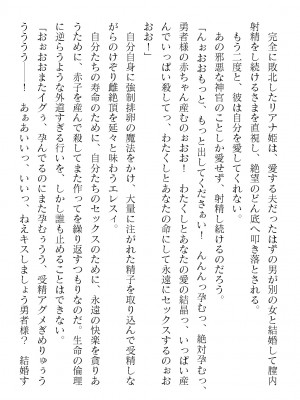 完全に敗北したリアナ姫は、愛する夫だったはずの男が別の女と結婚して膣内
射精をし続けるさまを直視し、絶望のどん底へ叩き落とされる。
　もう二度と、彼は自分を愛してくれない。
　あの邪悪な神官のことしか愛せず、射精し続けるのだろう。
「んぉおおもっと、もっと出してくださぁい！　んんんっ孕むっ、絶対孕むっ、
勇者様の赤ちゃん産むのぉおお！　わたくしとあなたの愛の結晶っ、いっぱい産
んでいっぱい殺してっ、わたくしとあなたの命にして永遠にセックスするのぉお
おお！」
　自分自身に強制排卵の魔法をかけ、大量に注がれた精子を取り込んで受精しな
がらのけぞり雌絶頂を延々と味わうエレスィ。
　自分たちの寿命のために、自分たちのセックスのために、永遠の快楽を貪りあ
うために、赤子を産んで殺してまた作ってを繰り返すつもりなのだ。生命の倫理
に逆らうような外道すぎる行いを、しかし誰も止めることはできない。
「おぉおおまたイグぅ、孕んでるのにまた孕むぅうう、受精アグメぎめりゅぅう
うううう――！　あぁあいいっ、いいっ、ねえキスしましょう勇者様？　結婚す